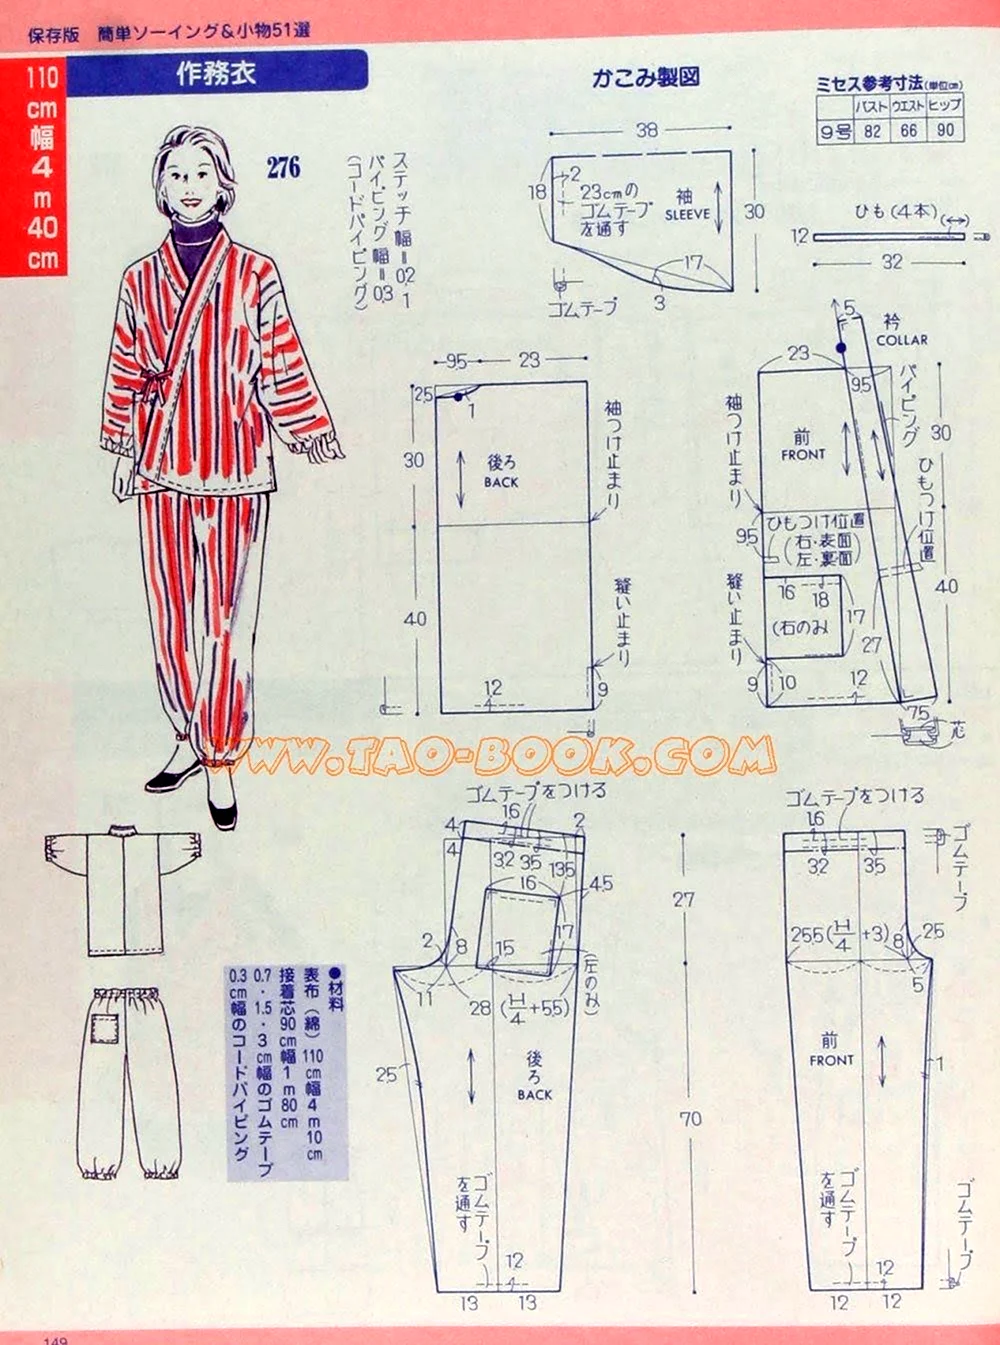 保存版 簡単ソーイング&小物51選
110
cm
幅
4
m
40
cm
作務衣
かこみ製図
ミセス参考寸法(単位cm)
バスト ウエスト ヒップ
9号 82 66 90
276
ステッチ幅=0.2、1
パイピング幅=0.3
(コードパイピング)
38
18
2
23cmの
ゴムテープ
を通す
袖
SLEEVE
30
17
3
ゴムテープ
ひも(4本)
12
32
9.5
23
2.5
1
30
後ろ
BACK
袖つけ止まり
40
縫い止まり
12
9
5
衿
COLLAR
23
9.5
パイピング
袖つけ止まり
前
FRONT
30
ひもつけ位置
9.5
ひもつけ位置
(右・表面)
(左・裏面)
16
18
17
(右のみ)
27
40
縫い止まり
9
10
12
7.5
芯
WWW.TAO-BOOK.COM
ゴムテープをつける
4
16
2
4
32
3.5
13.5
16
4.5
27
2
8
15
17
11
28 (H/4+5.5)
(左のみ)
25
後ろ
BACK
70
ゴムテープ
を通す
12
13
13
ゴムテープをつける
1.6
32
3.5
ゴムテープ
25.5 (H/4+3)
8
2.5
5
前
FRONT
1
ゴムテープ
を通す
12
12
12
ゴムテープ
●材料
表布(綿)110cm幅4m10cm
接着芯90cm幅1m80cm
0.7・1.5・3cm幅のゴムテープ
0.3cm幅のコードパイピング
149